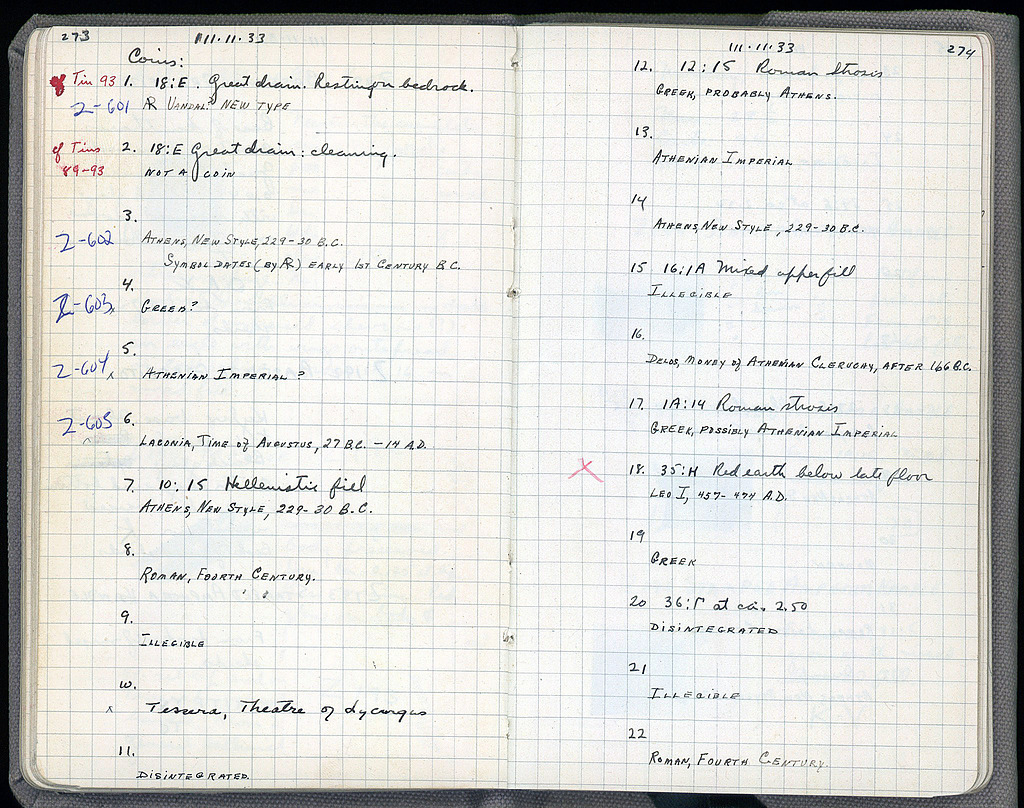 273
111.11.33
Coins:
cf Tin 93 1. 18:E. Great drain. Resting on bedrock.
2-601 AR VANDAL? NEW TYPE
cf Tins 2. 18:E Great drain: cleaning.
89-93 NOT A COIN
3.
2-602 ATHENS, NEW STYLE, 229-30 B.C.
SYMBOL DATES (BY AR) EARLY 1ST CENTURY B.C.
4.
2-603 GREEK?
5.
2-604 ATHENIAN IMPERIAL?
2-605 6.
LACONIA, TIME OF AUGUSTUS, 27 B.C. - 14 A.D.
7. 10:15 Hellenistic fill
ATHENS, NEW STYLE, 229-30 B.C.
8.
ROMAN, FOURTH CENTURY.
9.
ILLEGIBLE
10.
x Tessera, Theatre of Lycurgus
11.
DISINTEGRATED.
111.11.33
274
12. 12:15 Roman strosis
GREEK, PROBABLY ATHENS.
13.
ATHENIAN IMPERIAL
14
ATHENS, NEW STYLE, 229-30 B.C.
15 16:1A Mixed upper fill
ILLEGIBLE
16.
DELOS, MONEY of ATHENIAN CLERUCHY, AFTER 166 B.C.
17. 1A:14 Roman strosis
GREEK, POSSIBLY ATHENIAN IMPERIAL
X 18. 35:H Red earth below late floor
LEO I, 457-474 A.D.
19
GREEK
20 36:Γ at ca. 2.50
DISINTEGRATED
21
ILLEGIBLE
22
ROMAN, FOURTH CENTURY.